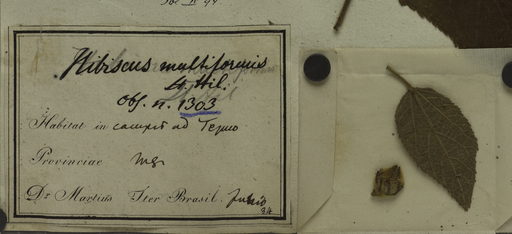 Hibiscus multiformis
St Hil.
Obs. n. 1303
Habitat in campis ad Tejuco
Provinciae
Dr Martius Iter Brasil. Junio